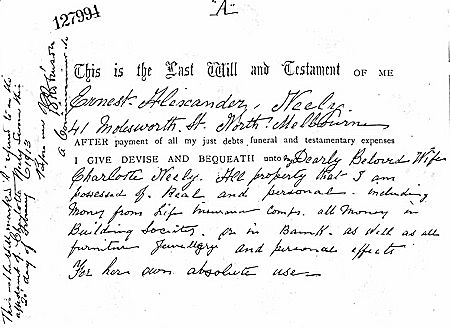 "A"
127994
This is the Last Will and Testament OF ME
Ernest Alexander Neely
41 Molesworth St. North Melbourne
AFTER payment of all my just debts funeral and testamentary expenses
I GIVE DEVISE AND BEQUEATH unto my Dearly Beloved Wife
Charlotte Neely. All property that I am
possessed of Real and personal. including
Money from Life Insurance Comps. all Money in
Building Society. or in Bank. as well as all
furniture Jewellery and personal effects
For her own absolute use
This is the will marked A referred to in the
affidavit of Charlotte Neely sworn this
day of February 1913
Before me
a Commissioner